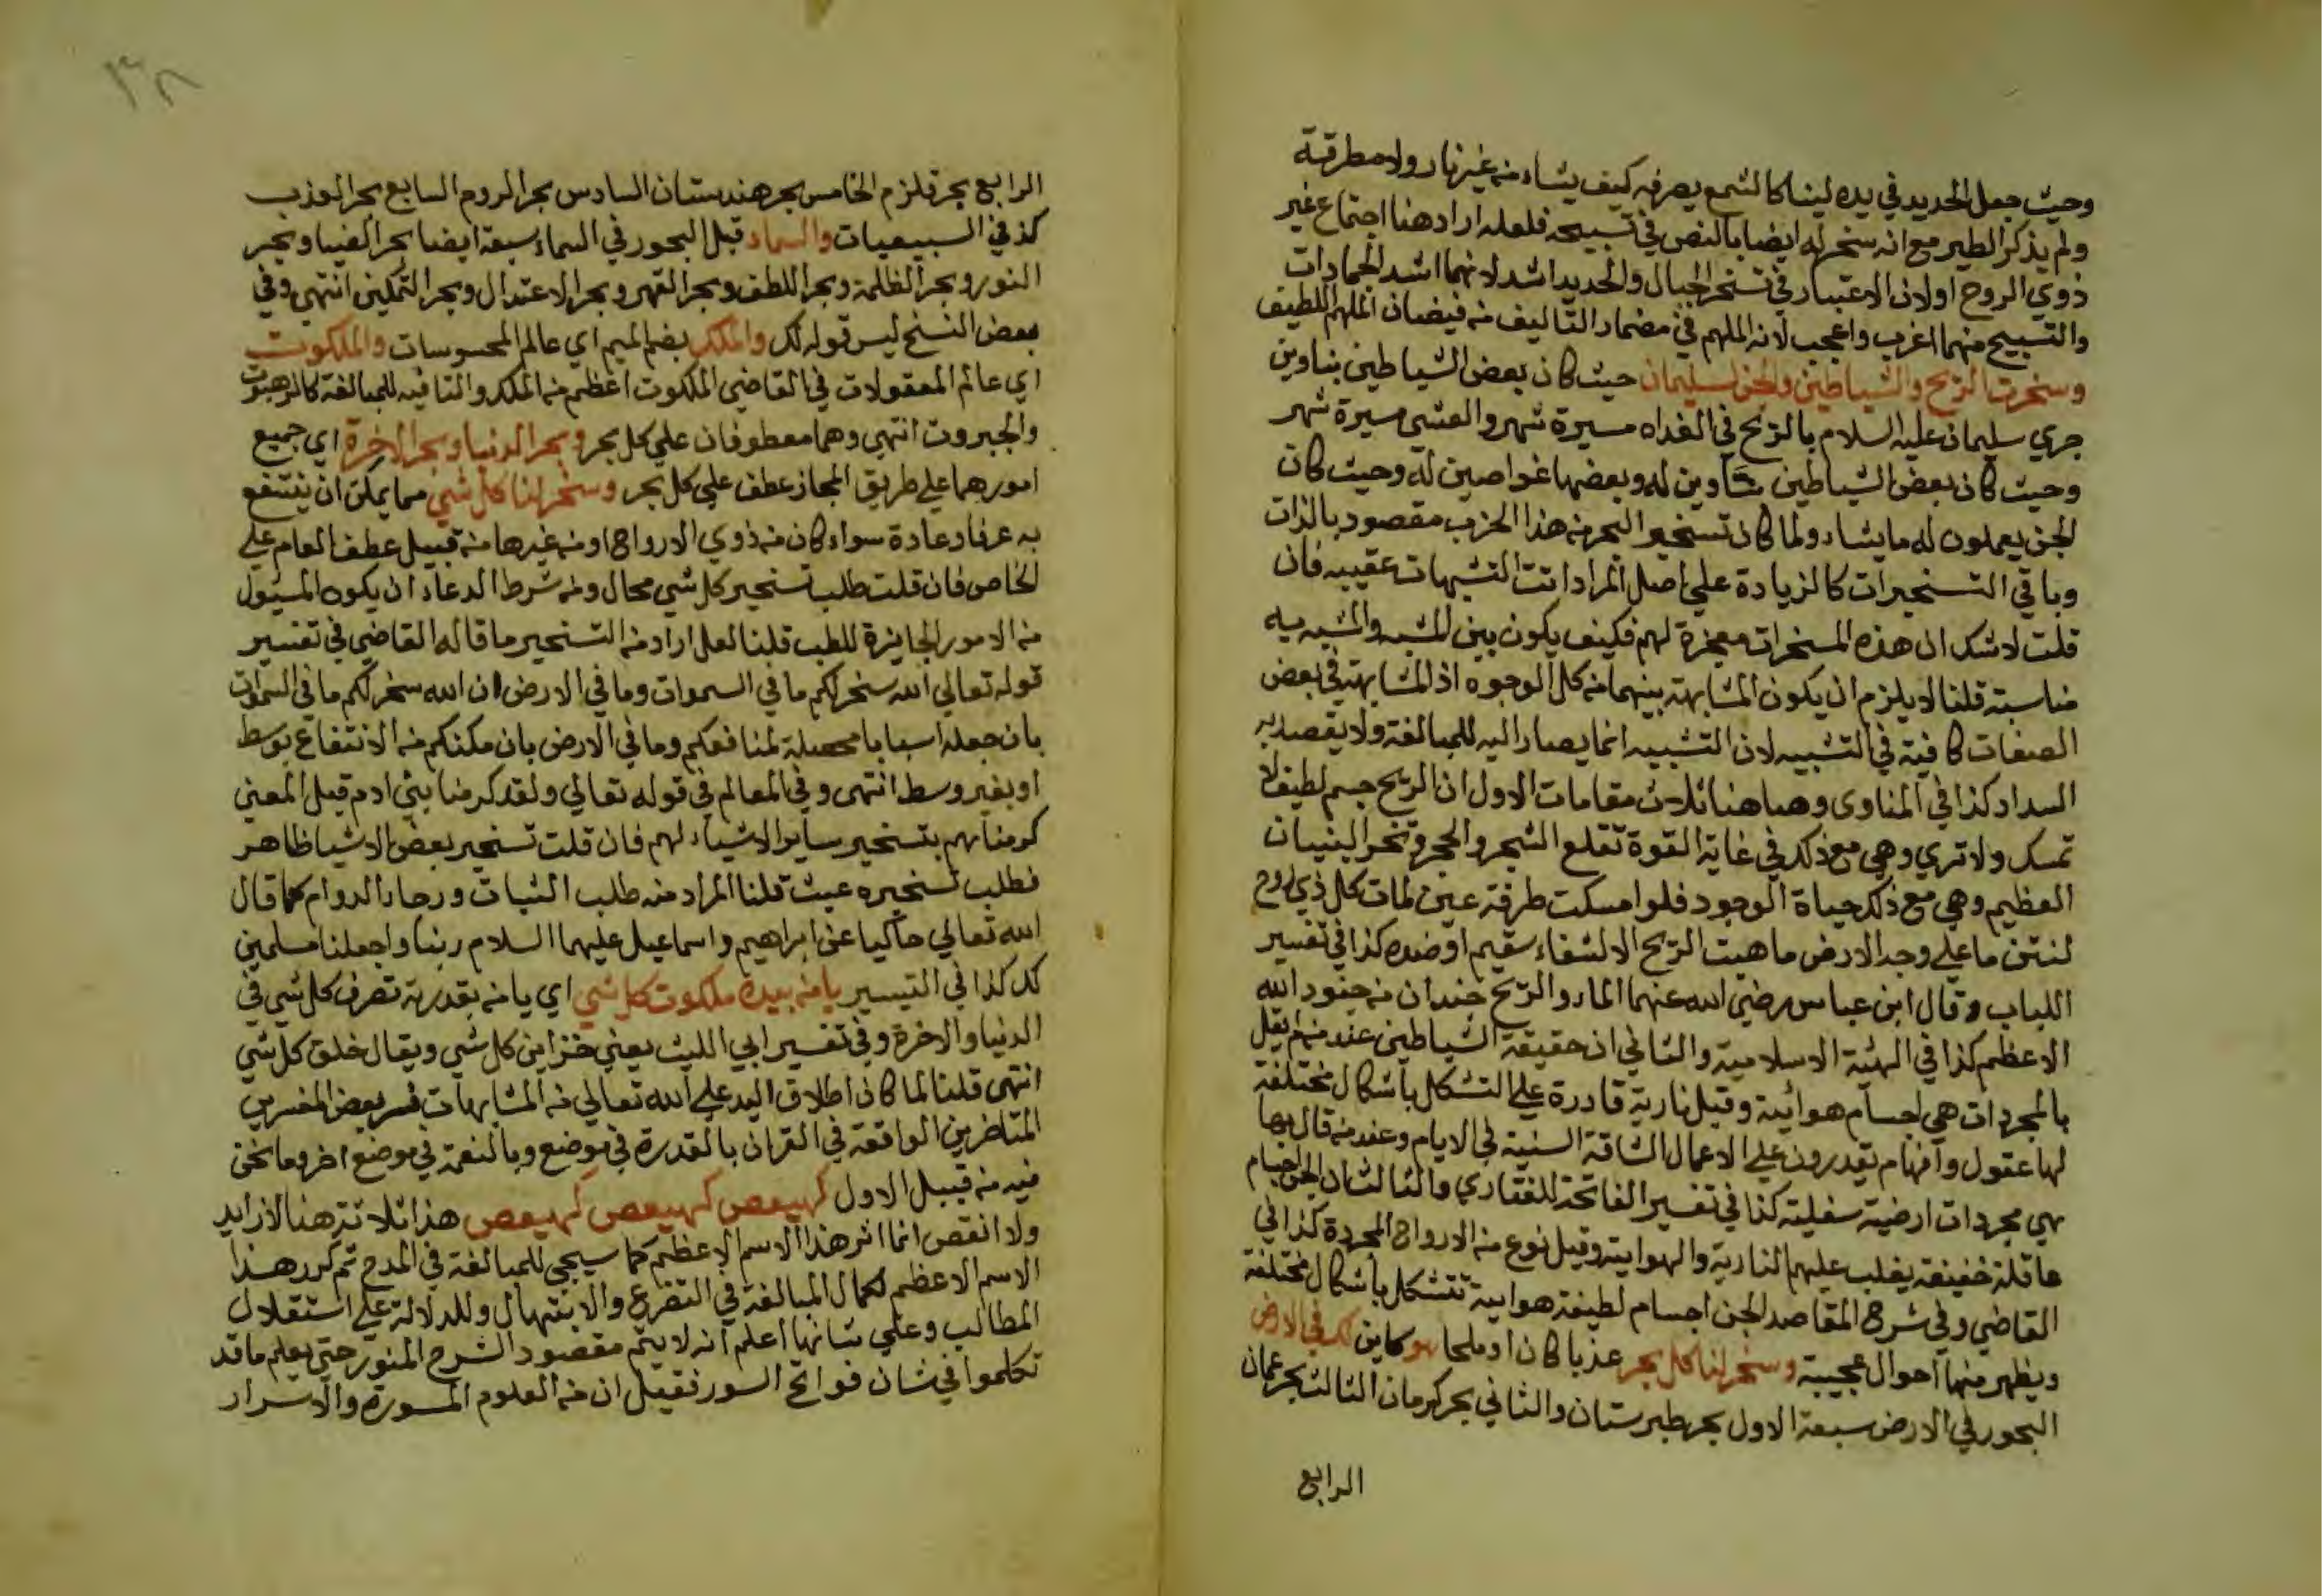 وحيث جعل الحديد في يده لينا كالشمع يصرفه كيف يشاء من غير نار ولا مطرقة
ولم يذكر الطير مع انه سخر له ايضا بالنص في تسبيحه فلعله اراد هنا اجتماع غير
ذوي الروح او لان الاعتبار في تسخر الجبال والحديد اشد لانهما اشد الجمادات
والتسبيح منهما اغرب واعجب لانه الملهم في مضمار التاليف من فيضان الملهم اللطيف
وسخرت الريح والشياطين والجن لسليمان حيث كان بعض الشياطين بناوين
جري سليمان عليه السلام بالريح في الغداه مسيرة شهر والعشي مسيرة شهر
وحيث كان بعض الشياطين بناوين له وبعضها غواصين له وحيث كان
الجن يعملون له ما يشاء ولما كان تسخير البحر من هذا الحزب مقصود بالذات
وباقي التسخيرات كالزيادة علي اصل المراد اتت التشبيهات عقيبه فان
قلت لا شك ان هذه المسخرات معجزة لهم فكيف يكون بين المشبه والمشبه به
مناسبة قلنا لا يلزم ان يكون المشابهة بينهما من كل الوجوه اذ المشابهة في بعض
الصفات كافية في التشبيه لان التشبيه انما يصار اليه للمبالغة ولا يقصد به
السداد كذا في المناوى وهاهنا ثلاث مقامات الاول ان الريح جسم لطيف لا
تمسك ولا تري وهي مع ذلك في غاية القوة تقلع الشجر والحجر وتخر البنيان
العظيم وهي مع ذلك حياة الوجود فلو امسكت طرفة عين لمات كل ذي روح
لنتن ما علي وجه الارض ما هبت الريح الا لشفاء سقيم او ضده كذا في تفسير
اللباب وقال ابن عباس رضي الله عنهما الماء والريح جندان من جنود الله
الاعظم كذا في الهيئة الاسلامية والثاني ان حقيقة الشياطين عند من لم يقل
بالمجردات هي اجسام هوائية وقيل نارية قادرة علي التشكل باشكال مختلفة
لها عقول وافهام يقدرون علي الاعمال الشاقة السنية في الايام وعند من قال بها
هي مجردات ارضية سفلية كذا في تفسير الفاتحة للفناري والثالث ان الجن اجسام
عاقلة خفيفة يغلب عليهم النارية والهوائية وقيل نوع من الارواح المجردة كذا في
القاضي وفي شرح المقاصد الجن اجسام لطيفة هوايية تتشكل باشكال مختلفة
ويظهر منها احوال عجيبة وسخر لنا كل بحر عذبا كان او ملحا هو كاين لك في الارض
البحور في الارض سبعة الاول بحر طبرستان والثاني بحر كرمان الثالث بحر عمان
الرابع
٣٨
الرابع بحر قلزم الخامس بحر هندستان السادس بحر الروم السابع بحر المغرب
كذ في السبعيات والسماء قيل البحور في السماء سبعة ايضا بحر الضيا وبحر
النور وبحر الظلمة وبحر اللطف وبحر القهر وبحر الاعتدال وبحر التمكين انتهي وفي
بعض النسخ ليس قوله لك والملك بضم الميم اي عالم المحسوسات والملكوت
اي عالم المعقولات في القاضي الملكوت اعظم من الملك والتا فيه للمبالغة كالرهبوت
والجبروت انتهي وهما معطوفان علي كل بحر وبحر الدنيا وبحر الاخرة اي جميع
امورهما علي طريق المجاز عطف علي كل بحر وسخر لنا كل شي مما يمكن ان ينتفع
به عرفا وعادة سواء كان من ذوي الارواح او من غيرها من قبيل عطف العام علي
الخاص فان قلت طلب تسخير كل شي محال ومن شرط الدعاء ان يكون المسئول
من الامور الجايزة للطب قلنا لعل اراد من التسخير ما قاله القاضي في تفسير
قوله تعالي الله سخر لكم ما في السموات وما في الارض ان الله سخر لكم ما في السموات
بان جعله اسبابا محصلة لمنافعكم وما في الارض بان مكنكم من الانتفاع بوسط
او بغير وسط انتهى وفي المعالم في قوله تعالي ولقد كرمنا بني ادم قيل المعني
كرمناهم بتسخير ساير الاشياء لهم فان قلت تسخير بعض الاشيا ظاهر
فطلب تسخيره عبث قلنا المراد منه طلب الثبات ورجاء الدوام كما قال
الله تعالي حاكيا عن ابراهيم واسماعيل عليهما السلام ربنا واجعلنا مسلمين
لك كذا في التيسير يا من بيده ملكوت كل شي اي يا من بقدرته تصرف كل شي في
الدنيا والاخرة وفي تفسير ابي الليث يعني خزاين كل شي ويقال خلق كل شي
انتهي قلنا لما كان اطلاق اليد علي الله تعالي من المشابهات فسر بعض المفسرين
المتاخرين الواقعة في القران بالقدرة في موضع وبالنعمة في موضع اخر وما نحن
فيه من قبيل الاول كهيعص كهيعص كهيعص هذا ثلاثة هنا لا زايد
ولا انقص انما اثر هذا الاسم الاعظم كما سيجي للمبالغة في المدح ثم كرر هذا
الاسم الاعظم لكمال المبالغة في التضرع والابتهال وللدلالة علي استقلال
المطالب وعلي شانها اعلم انه لا يتم مقصود الشرح المنور حتي يعلم ما قد
تكلموا في شان فواتح السور فقيل ان من العلوم المسورة والاسرار